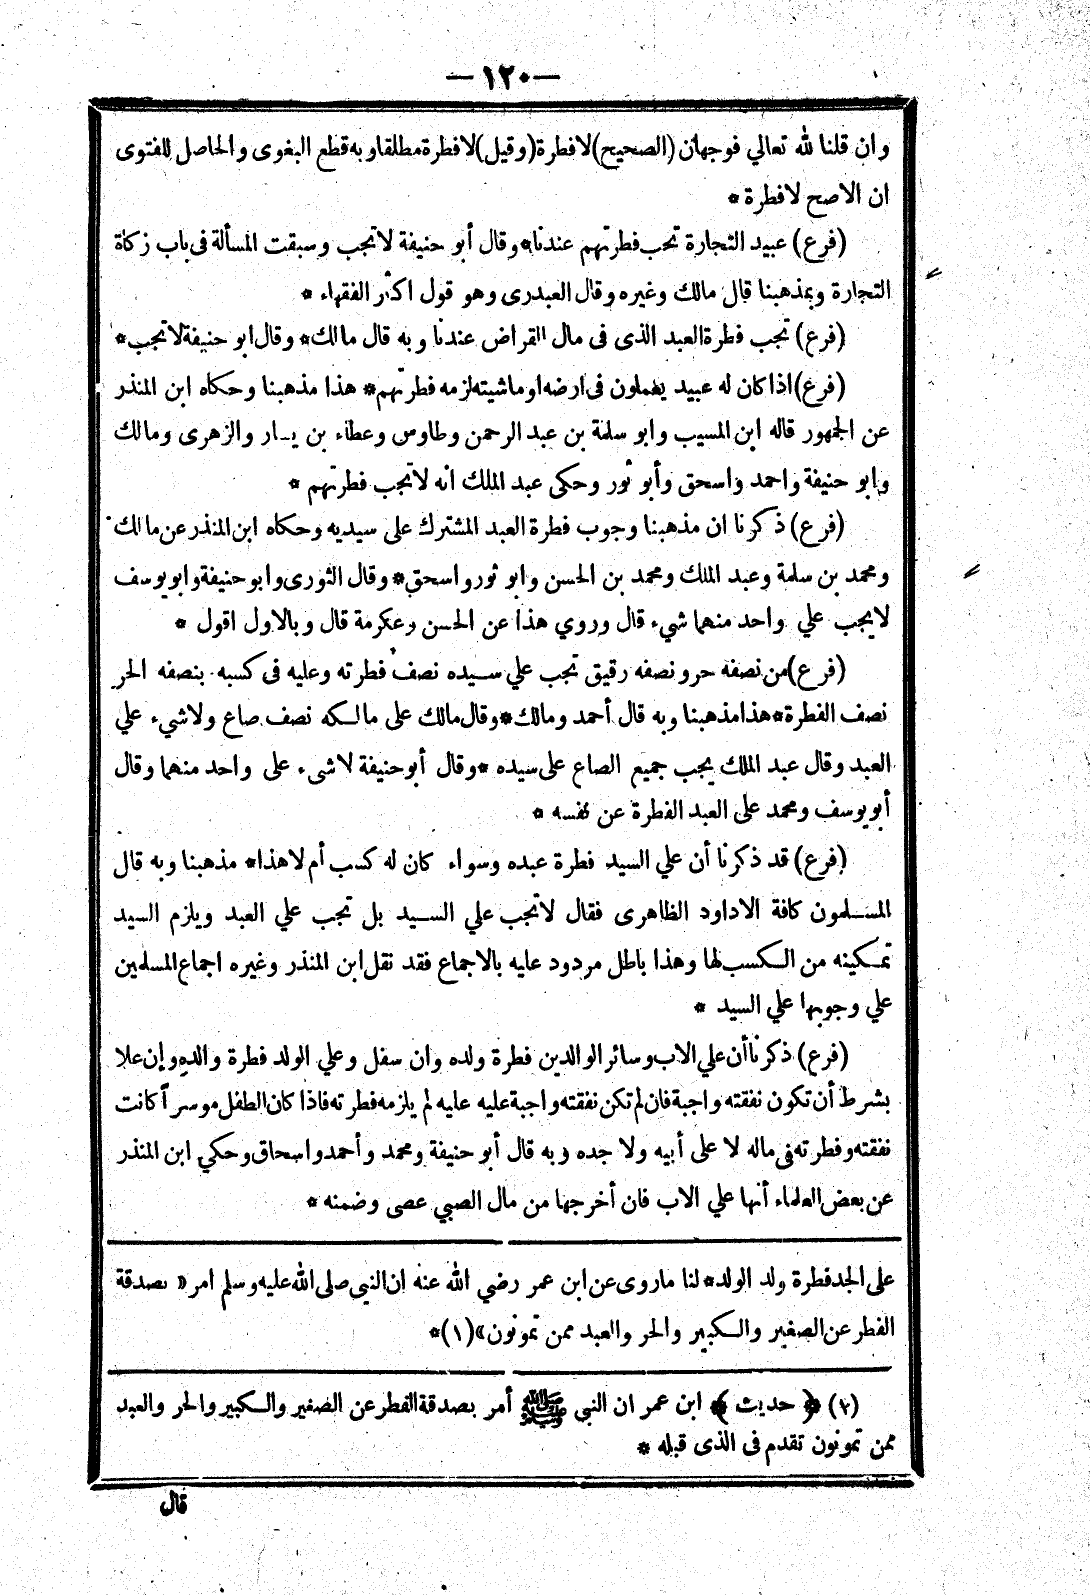 — ١٢٠ —
وان قلنا لله تعالي فوجهان (الصحيح) لا فطرة (وقيل) لا فطرة مطلقا وبه قطع البغوى والحاصل للفتوى
ان الاصح لا فطرة *
(فرع) عبيد التجارة تجب فطرتهم عندنا * وقال أبو حنيفة لا تجب وسبقت المسألة فى باب زكاة
التجارة وبمذهبنا قال مالك وغيره وقال العبدرى وهو قول اكثر الفقهاء *
(فرع) تجب فطرة العبد الذى فى مال القراض عندنا وبه قال مالك * وقال ابو حنيفة لا تجب *
(فرع) اذا كان له عبيد يعملون فى ارضه او ماشيته لزمه فطرتهم * هذا مذهبنا وحكاه ابن المنذر
عن الجمهور قاله ابن المسيب وابو سلمة بن عبد الرحمن وطاوس وعطاء بن يسار والزهرى ومالك
وابو حنيفة واحمد واسحق وأبو ثور وحكى عبد الملك انه لا تجب فطرتهم *
(فرع) ذكرنا ان مذهبنا وجوب فطرة العبد المشترك على سيديه وحكاه ابن المنذر عن مالك
ومحمد بن سلمة وعبد الملك ومحمد بن الحسن وابو ثور واسحق * وقال الثورى وابو حنيفة وابو يوسف
لا يجب علي واحد منهما شيء قال وروي هذا عن الحسن وعكرمة قال وبالاول اقول *
(فرع) من نصفه حر ونصفه رقيق تجب علي سيده نصف فطرته وعليه فى كسبه بنصفه الحر
نصف الفطرة * هذا مذهبنا وبه قال أحمد ومالك * وقال مالك على مالكه نصف صاع ولا شيء علي
العبد وقال عبد الملك يجب جميع الصاع على سيده * وقال أبو حنيفة لا شىء على واحد منهما وقال
أبو يوسف ومحمد على العبد الفطرة عن نفسه *
(فرع) قد ذكرنا أن علي السيد فطرة عبده وسواء كان له كسب أم لا هذا * مذهبنا وبه قال
المسلمون كافة الا داود الظاهرى فقال لا تجب علي السيد بل تجب علي العبد ويلزم السيد
تمكينه من الكسب لها وهذا باطل مردود عليه بالاجماع فقد نقل ابن المنذر وغيره اجماع المسلمين
علي وجوبها علي السيد *
(فرع) ذكرنا أن علي الاب وسائر الوالدين فطرة ولده وان سفل وعلي الولد فطرة والده وإن علا
بشرط أن تكون نفقته واجبة فان لم تكن نفقته واجبة عليه عليه لم يلزمه فطرته فاذا كان الطفل موسراً كانت
نفقته وفطرته فى ماله لا على أبيه ولا جده وبه قال أبو حنيفة ومحمد وأحمد واسحاق وحكي ابن المنذر
عن بعض العلماء أنها علي الاب فان أخرجها من مال الصبي عصى وضمنه *
على الجد فطرة ولد الولد * لنا ماروى عن ابن عمر رضي الله عنه ان النبي صلى الله عليه وسلم امر « بصدقة
الفطر عن الصغير والكبير والحر والعبد ممن تمونون » (١) *
(١) ﴿ حديث ﴾ ابن عمر ان النبي ﷺ أمر بصدقة الفطر عن الصغير والكبير والحر والعبد
ممن تمونون تقدم فى الذى قبله *
قال